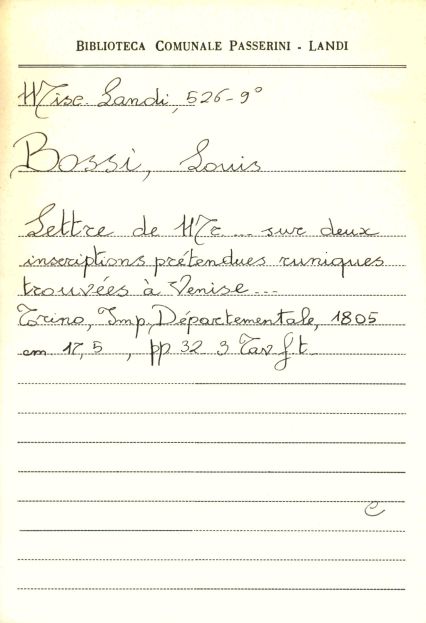 BIBLIOTECA COMUNALE PASSERINI - LANDI
Misc. Landi, 526-9°
Bossi, Louis
Lettre de Mr ... sur deux
inscriptions prétendues runiques
trouvées à Venise ...
Torino, Imp. Départementale, 1805
cm 17,5 , pp 32 3 Tav f.t.
C